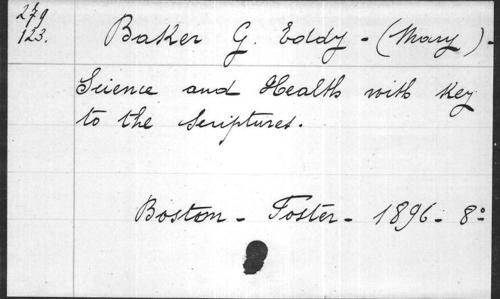 279
123.
Baker G. Eddy - (Mary) -
Science and Health with Key
to the Scriptures.
Boston - Foster - 1896 - 8º